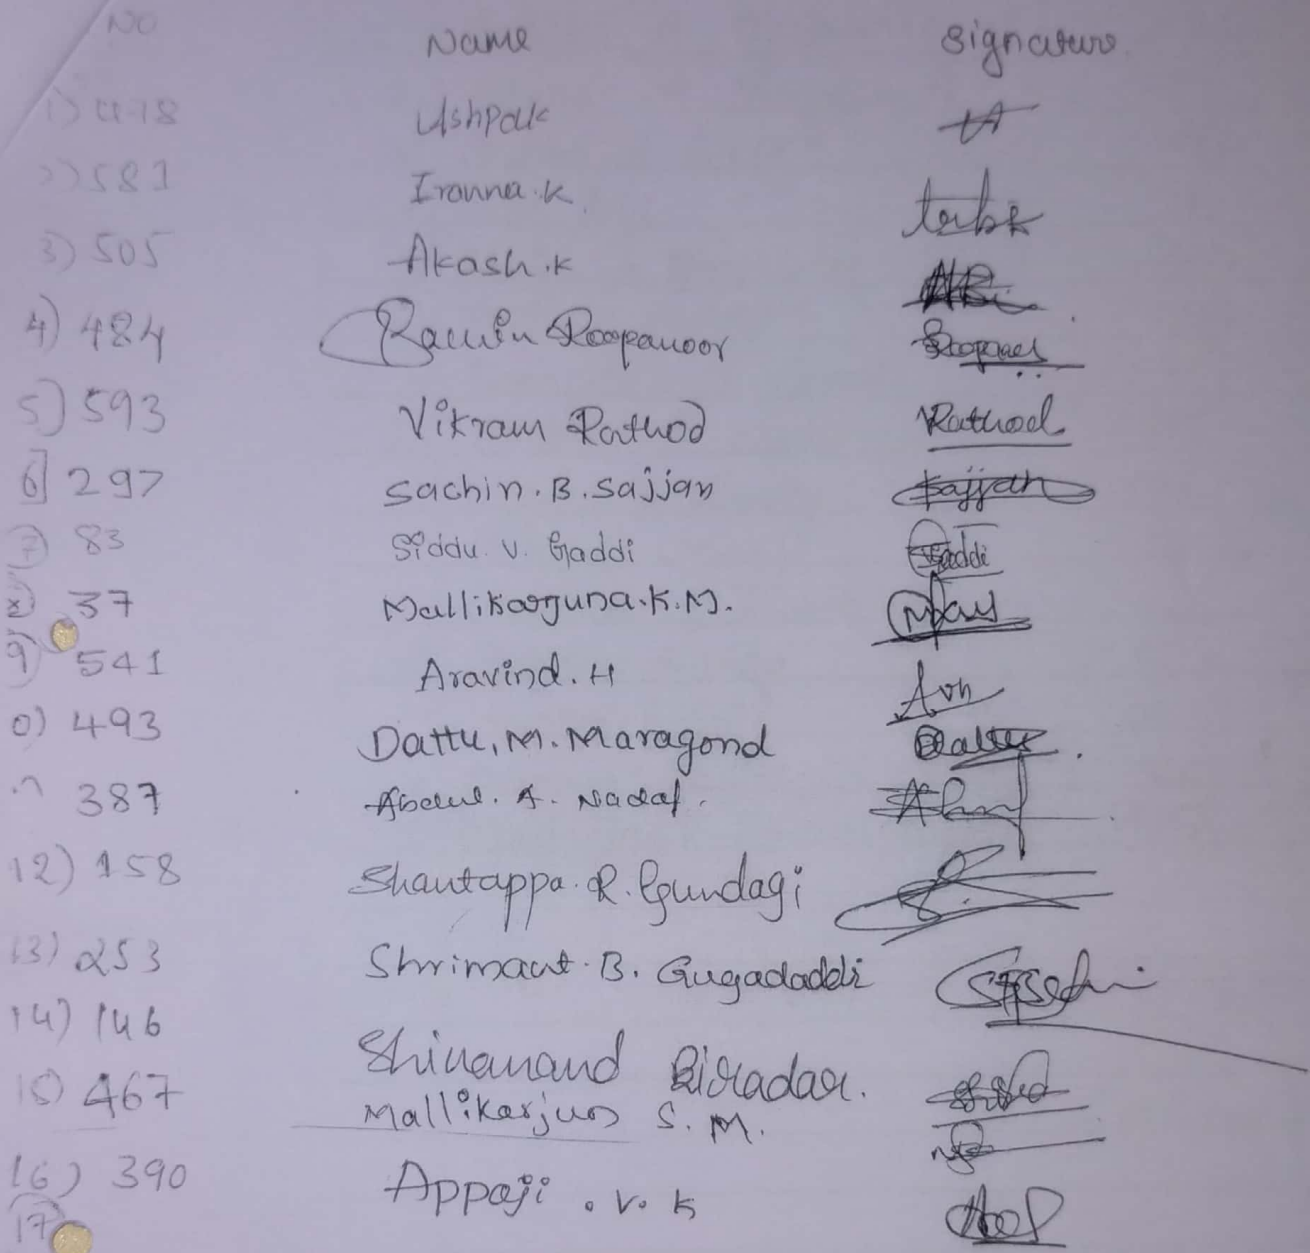 NO Name Signature
1) 418 Ushpak
2) 581 Iranna.K
3) 505 Akash.K
4) 484 Roopanoor
5) 593 Vikram Rathod Rathod
6] 297 Sachin.B.Sajjan Sajjan
7) 83 Siddu.V.Gaddi Gaddi
37 Mallikarguna.K.M.
9) 541 Aravind.H
0) 493 Dattu.M.Maragond
387 Abdul.A.Nadaf.
12) 158 Shantappa.R.Gundagi
13) 253 Shrimant.B.Gugadaddi
14) 146 Shivanand Biradar.
15) 467 Mallikarjun S.M.
16) 390 Appaji.V.K
17